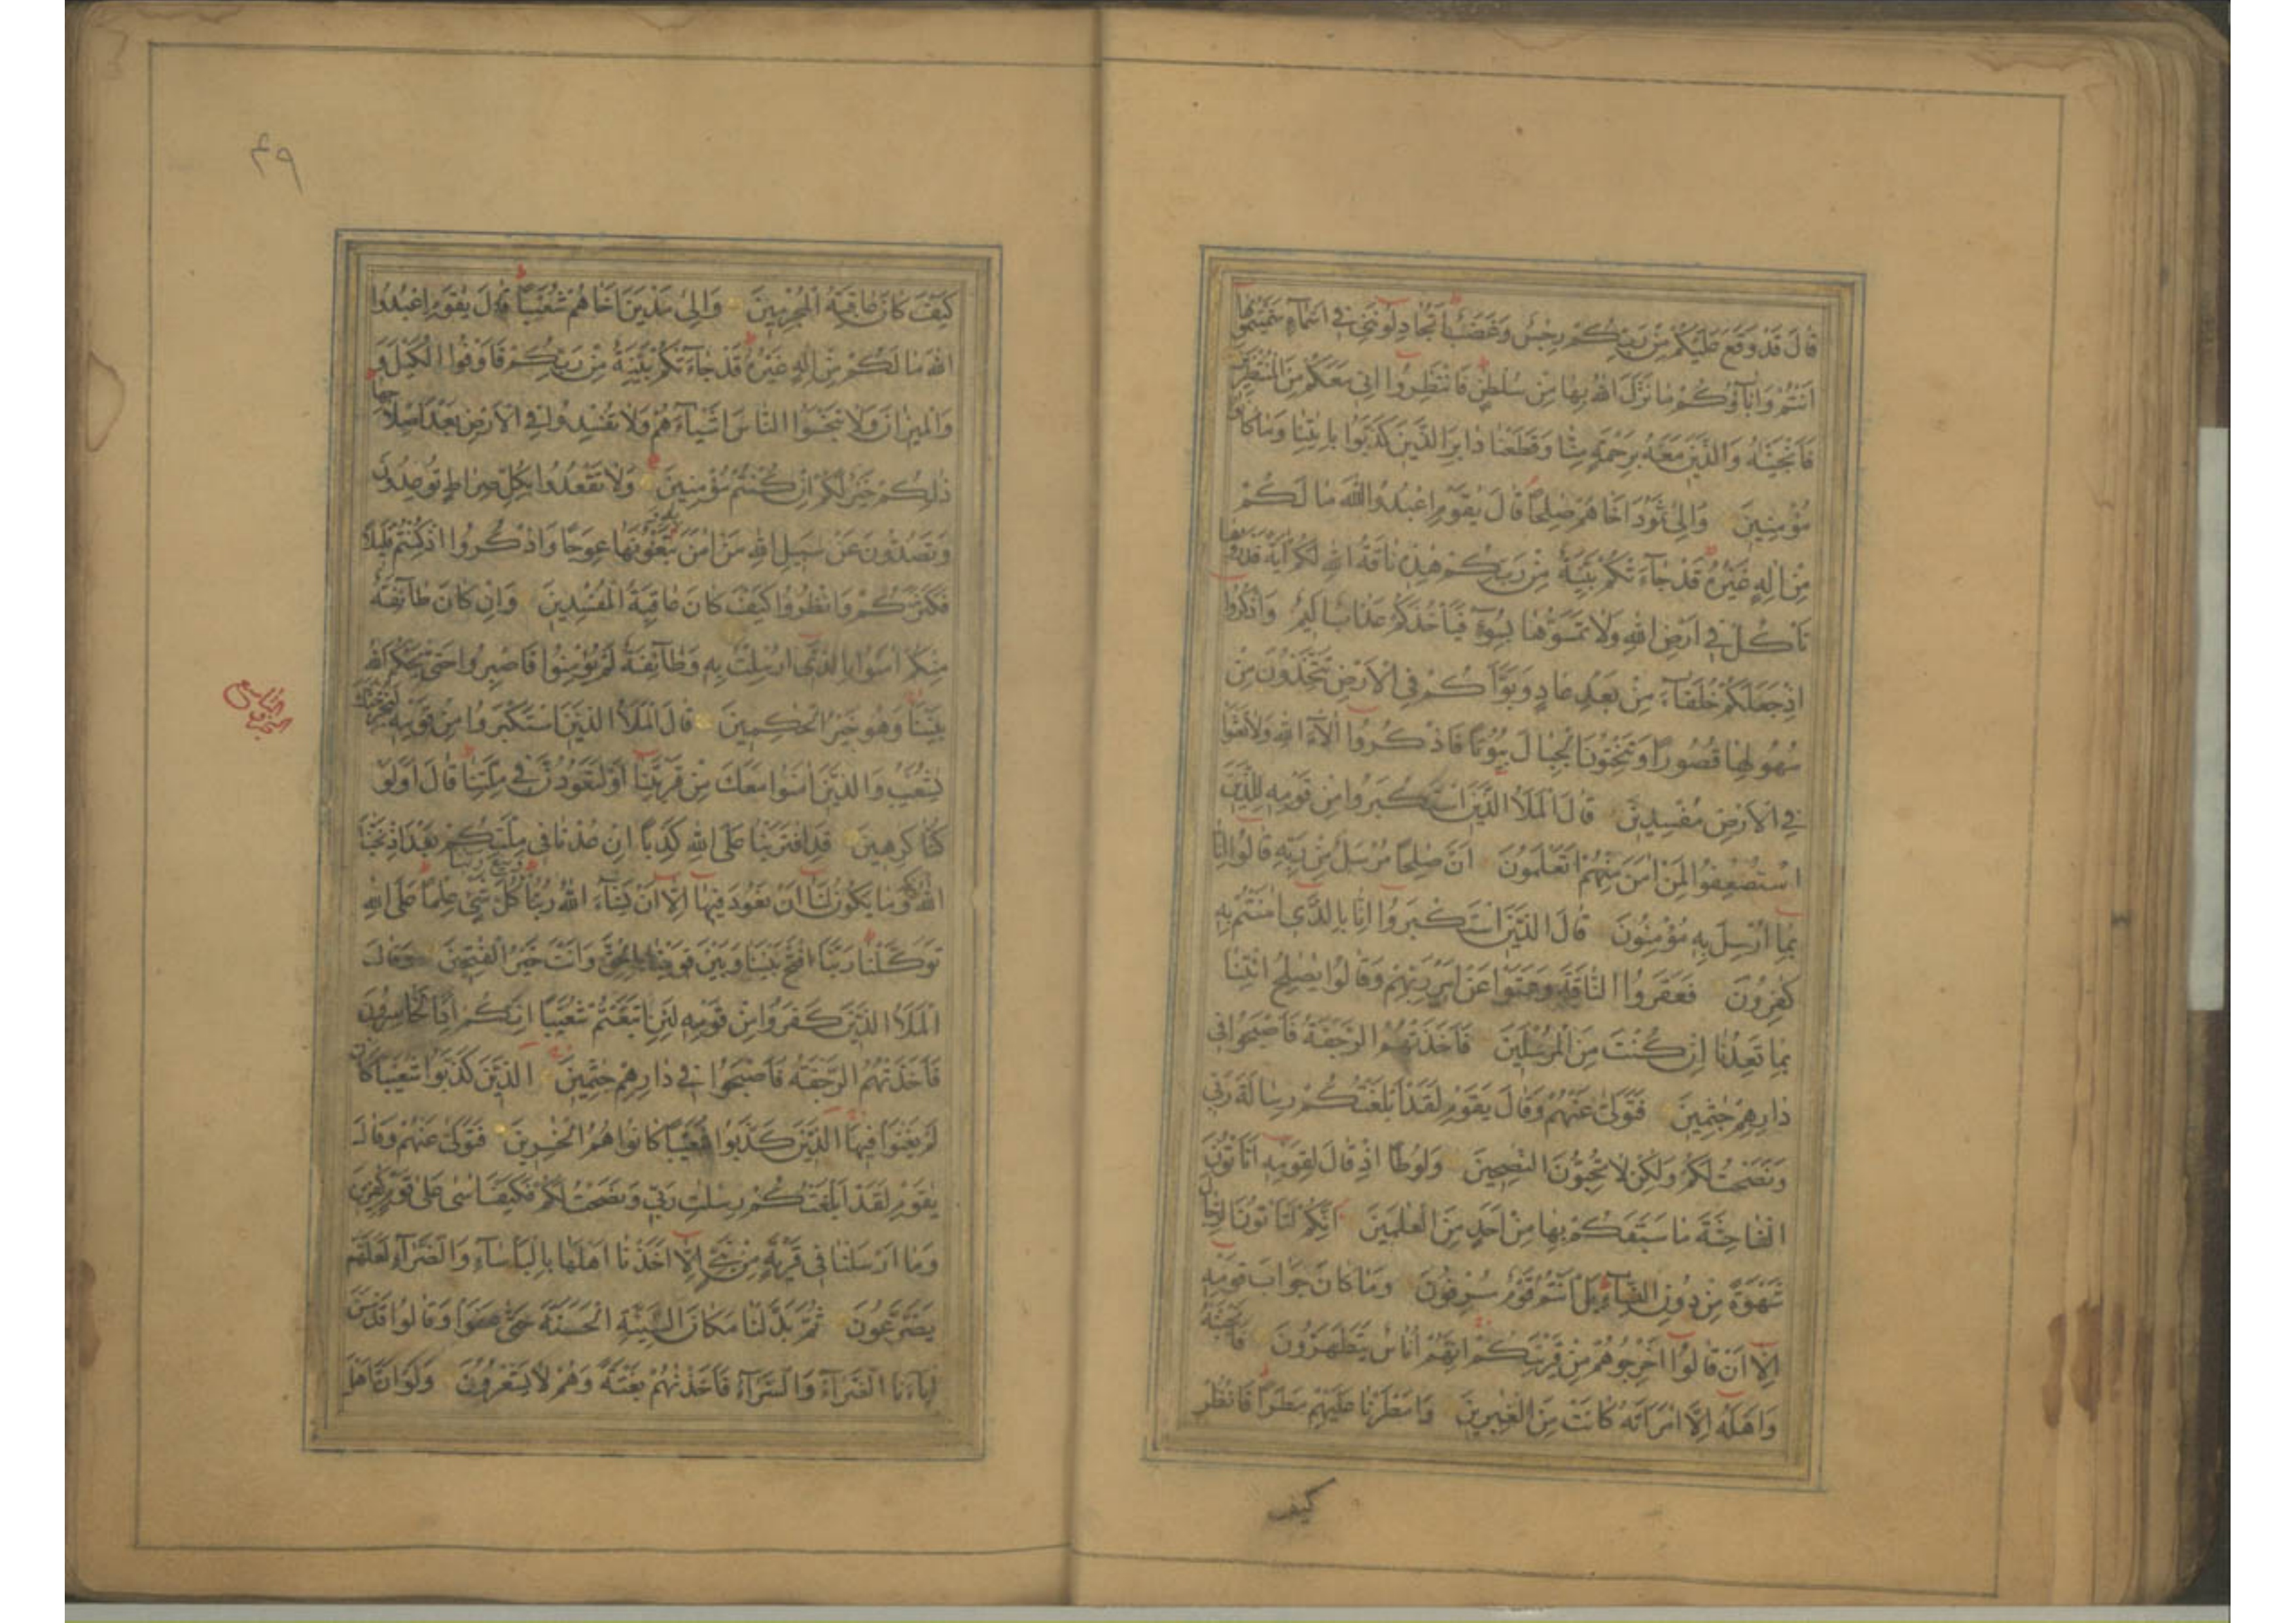 قَالَ قَدْ وَقَعَ عَلَيْكُمْ مِنْ رَبِّكُمْ رِجْسٌ وَغَضَبٌ اَتُجَادِلُونَنِي فِي اَسْمَآءٍ سَمَّيْتُمُوهَا
اَنْتُمْ وَاٰبَآؤُكُمْ مَا نَزَّلَ اللّٰهُ بِهَا مِنْ سُلْطٰنٍ فَانْتَظِرُوا اِنِّي مَعَكُمْ مِنَ الْمُنْتَظِرِينَ
فَاَنْجَيْنٰهُ وَالَّذِينَ مَعَهُ بِرَحْمَةٍ مِنَّا وَقَطَعْنَا دَابِرَ الَّذِينَ كَذَّبُوا بِاٰيٰتِنَا وَمَا كَانُوا
مُؤْمِنِينَ وَاِلٰى ثَمُودَ اَخَاهُمْ صٰلِحًا قَالَ يٰقَوْمِ اعْبُدُوا اللّٰهَ مَا لَكُمْ
مِنْ اِلٰهٍ غَيْرُهُ قَدْ جَآءَتْكُمْ بَيِّنَةٌ مِنْ رَبِّكُمْ هٰذِهِ نَاقَةُ اللّٰهِ لَكُمْ اٰيَةً فَذَرُوهَا
تَاْكُلْ فِي اَرْضِ اللّٰهِ وَلَا تَمَسُّوهَا بِسُوٓءٍ فَيَاْخُذَكُمْ عَذَابٌ اَلِيمٌ وَاذْكُرُوا
اِذْ جَعَلَكُمْ خُلَفَآءَ مِنْ بَعْدِ عَادٍ وَبَوَّاَكُمْ فِي الْاَرْضِ تَتَّخِذُونَ مِنْ
سُهُولِهَا قُصُورًا وَتَنْحِتُونَ الْجِبَالَ بُيُوتًا فَاذْكُرُوا اٰلَآءَ اللّٰهِ وَلَا تَعْثَوْا
فِي الْاَرْضِ مُفْسِدِينَ قَالَ الْمَلَاُ الَّذِينَ اسْتَكْبَرُوا مِنْ قَوْمِهِ لِلَّذِينَ
اسْتُضْعِفُوا لِمَنْ اٰمَنَ مِنْهُمْ اَتَعْلَمُونَ اَنَّ صٰلِحًا مُرْسَلٌ مِنْ رَبِّهِ قَالُوا اِنَّا
بِمَا اُرْسِلَ بِهِ مُؤْمِنُونَ قَالَ الَّذِينَ اسْتَكْبَرُوا اِنَّا بِالَّذِي اٰمَنْتُمْ بِهِ
كٰفِرُونَ فَعَقَرُوا النَّاقَةَ وَعَتَوْا عَنْ اَمْرِ رَبِّهِمْ وَقَالُوا يٰصٰلِحُ ائْتِنَا
بِمَا تَعِدُنَا اِنْ كُنْتَ مِنَ الْمُرْسَلِينَ فَاَخَذَتْهُمُ الرَّجْفَةُ فَاَصْبَحُوا فِي
دَارِهِمْ جٰثِمِينَ فَتَوَلّٰى عَنْهُمْ وَقَالَ يٰقَوْمِ لَقَدْ اَبْلَغْتُكُمْ رِسَالَةَ رَبِّي
وَنَصَحْتُ لَكُمْ وَلٰكِنْ لَا تُحِبُّونَ النّٰصِحِينَ وَلُوطًا اِذْ قَالَ لِقَوْمِهِ اَتَاْتُونَ
الْفَاحِشَةَ مَا سَبَقَكُمْ بِهَا مِنْ اَحَدٍ مِنَ الْعٰلَمِينَ اِنَّكُمْ لَتَاْتُونَ الرِّجَالَ
شَهْوَةً مِنْ دُونِ النِّسَآءِ بَلْ اَنْتُمْ قَوْمٌ مُسْرِفُونَ وَمَا كَانَ جَوَابَ قَوْمِهِ
اِلَّا اَنْ قَالُوا اَخْرِجُوهُمْ مِنْ قَرْيَتِكُمْ اِنَّهُمْ اُنَاسٌ يَتَطَهَّرُونَ فَاَنْجَيْنٰهُ
وَاَهْلَهُ اِلَّا امْرَاَتَهُ كَانَتْ مِنَ الْغٰبِرِينَ وَاَمْطَرْنَا عَلَيْهِمْ مَطَرًا فَانْظُرْ
كيف
۴۹
كَيْفَ كَانَ عَاقِبَةُ الْمُجْرِمِينَ وَاِلٰى مَدْيَنَ اَخَاهُمْ شُعَيْبًا قَالَ يٰقَوْمِ اعْبُدُوا
اللّٰهَ مَا لَكُمْ مِنْ اِلٰهٍ غَيْرُهُ قَدْ جَآءَتْكُمْ بَيِّنَةٌ مِنْ رَبِّكُمْ فَاَوْفُوا الْكَيْلَ وَ
وَالْمِيزَانَ وَلَا تَبْخَسُوا النَّاسَ اَشْيَآءَهُمْ وَلَا تُفْسِدُوا فِي الْاَرْضِ بَعْدَ اِصْلَاحِهَا
ذٰلِكُمْ خَيْرٌ لَكُمْ اِنْ كُنْتُمْ مُؤْمِنِينَ وَلَا تَقْعُدُوا بِكُلِّ صِرَاطٍ تُوعِدُونَ
وَتَصُدُّونَ عَنْ سَبِيلِ اللّٰهِ مَنْ اٰمَنَ بِهِ وَتَبْغُونَهَا عِوَجًا وَاذْكُرُوا اِذْ كُنْتُمْ قَلِيلًا
فَكَثَّرَكُمْ وَانْظُرُوا كَيْفَ كَانَ عَاقِبَةُ الْمُفْسِدِينَ وَاِنْ كَانَ طَآئِفَةٌ
مِنْكُمْ اٰمَنُوا بِالَّذِي اُرْسِلْتُ بِهِ وَطَآئِفَةٌ لَمْ يُؤْمِنُوا فَاصْبِرُوا حَتّٰى يَحْكُمَ اللّٰهُ
بَيْنَنَا وَهُوَ خَيْرُ الْحٰكِمِينَ قَالَ الْمَلَاُ الَّذِينَ اسْتَكْبَرُوا مِنْ قَوْمِهِ لَنُخْرِجَنَّكَ
يٰشُعَيْبُ وَالَّذِينَ اٰمَنُوا مَعَكَ مِنْ قَرْيَتِنَا اَوْ لَتَعُودُنَّ فِي مِلَّتِنَا قَالَ اَوَلَوْ
كُنَّا كٰرِهِينَ قَدِ افْتَرَيْنَا عَلَى اللّٰهِ كَذِبًا اِنْ عُدْنَا فِي مِلَّتِكُمْ بَعْدَ اِذْ نَجّٰنَا
اللّٰهُ مِنْهَا وَمَا يَكُونُ لَنَا اَنْ نَعُودَ فِيهَا اِلَّا اَنْ يَشَآءَ اللّٰهُ رَبُّنَا وَسِعَ رَبُّنَا كُلَّ شَيْءٍ عِلْمًا عَلَى اللّٰهِ
تَوَكَّلْنَا رَبَّنَا افْتَحْ بَيْنَنَا وَبَيْنَ قَوْمِنَا بِالْحَقِّ وَاَنْتَ خَيْرُ الْفٰتِحِينَ وَقَالَ
الْمَلَاُ الَّذِينَ كَفَرُوا مِنْ قَوْمِهِ لَئِنِ اتَّبَعْتُمْ شُعَيْبًا اِنَّكُمْ اِذًا لَخَاسِرُونَ
فَاَخَذَتْهُمُ الرَّجْفَةُ فَاَصْبَحُوا فِي دَارِهِمْ جٰثِمِينَ الَّذِينَ كَذَّبُوا شُعَيْبًا كَاَنْ
لَمْ يَغْنَوْا فِيهَا الَّذِينَ كَذَّبُوا شُعَيْبًا كَانُوا هُمُ الْخٰسِرِينَ فَتَوَلّٰى عَنْهُمْ وَقَالَ
يٰقَوْمِ لَقَدْ اَبْلَغْتُكُمْ رِسٰلٰتِ رَبِّي وَنَصَحْتُ لَكُمْ فَكَيْفَ اٰسٰى عَلٰى قَوْمٍ كٰفِرِينَ
وَمَا اَرْسَلْنَا فِي قَرْيَةٍ مِنْ نَبِيٍّ اِلَّا اَخَذْنَا اَهْلَهَا بِالْبَاْسَآءِ وَالضَّرَّآءِ لَعَلَّهُمْ
يَضَّرَّعُونَ ثُمَّ بَدَّلْنَا مَكَانَ السَّيِّئَةِ الْحَسَنَةَ حَتّٰى عَفَوْا وَقَالُوا قَدْ مَسَّ
اٰبَآءَنَا الضَّرَّآءُ وَالسَّرَّآءُ فَاَخَذْنٰهُمْ بَغْتَةً وَهُمْ لَا يَشْعُرُونَ وَلَوْ اَنَّ اَهْلَ